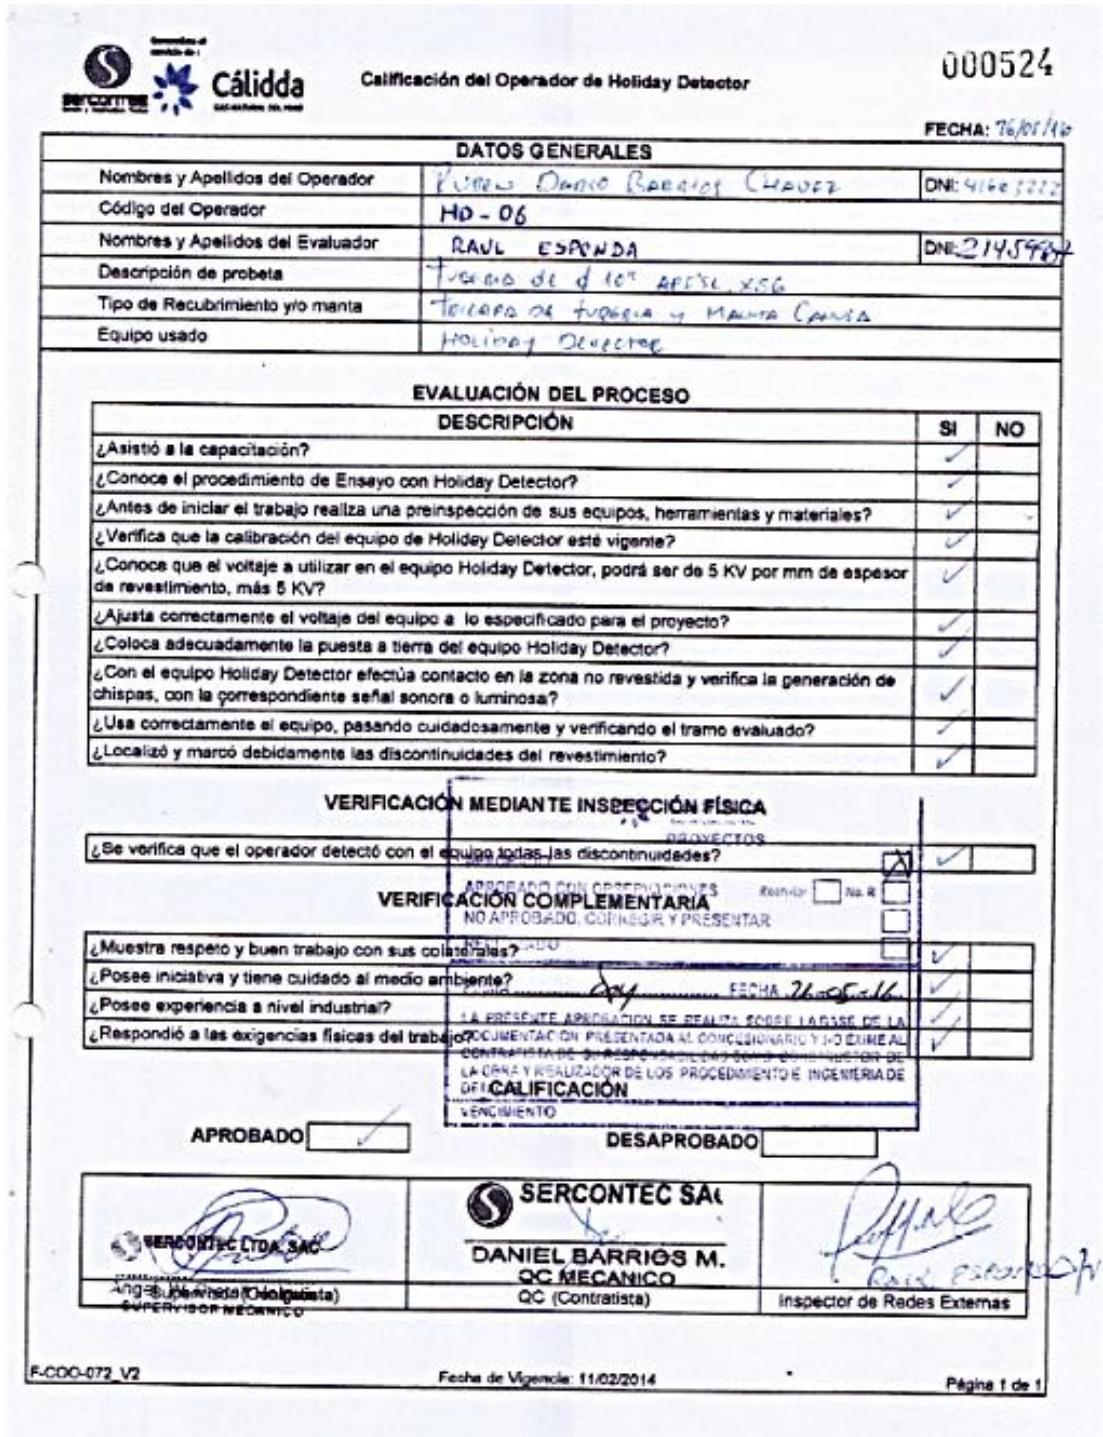 Cálidda
GAS NATURAL DEL PERÚ
Calificación del Operador de Holiday Detector
000524
FECHA: 26/05/16
DATOS GENERALES
Nombres y Apellidos del Operador Ruben Dario Barrios Chavez DNI:
Código del Operador HD-06
Nombres y Apellidos del Evaluador RAUL ESPONDA DNI:
Descripción de probeta Tuberia de ϕ 10" API 5L X56
Tipo de Recubrimiento y/o manta Tricapa de tuberia y Manta Canusa
Equipo usado Holiday Detector
EVALUACIÓN DEL PROCESO
DESCRIPCIÓN SI NO
¿Asistió a la capacitación? ✓
¿Conoce el procedimiento de Ensayo con Holiday Detector? ✓
¿Antes de iniciar el trabajo realiza una preinspección de sus equipos, herramientas y materiales? ✓
¿Verifica que la calibración del equipo de Holiday Detector esté vigente? ✓
¿Conoce que el voltaje a utilizar en el equipo Holiday Detector, podrá ser de 5 KV por mm de espesor
de revestimiento, más 5 KV? ✓
¿Ajusta correctamente el voltaje del equipo a lo especificado para el proyecto? ✓
¿Coloca adecuadamente la puesta a tierra del equipo Holiday Detector? ✓
¿Con el equipo Holiday Detector efectúa contacto en la zona no revestida y verifica la generación de
chispas, con la correspondiente señal sonora o luminosa? ✓
¿Usa correctamente el equipo, pasando cuidadosamente y verificando el tramo evaluado? ✓
¿Localizó y marcó debidamente las discontinuidades del revestimiento? ✓
VERIFICACIÓN MEDIANTE INSPECCIÓN FÍSICA
PROYECTOS
¿Se verifica que el operador detectó con el equipo todas las discontinuidades? ✓
APROBADO CON OBSERVACIONES
VERIFICACIÓN COMPLEMENTARIA
NO APROBADO, CORREGIR Y PRESENTAR
¿Muestra respeto y buen trabajo con sus colaterales? ✓
¿Posee iniciativa y tiene cuidado al medio ambiente? ✓
FECHA 26-05-16
¿Posee experiencia a nivel industrial? ✓
LA PRESENTE APROBACION SE REALIZA SOBRE LA BASE DE LA
¿Respondió a las exigencias físicas del trabajo? ✓
DOCUMENTACION PRESENTADA AL CONCESIONARIO Y NO EXIME AL
CONTRATISTA DE SU RESPONSABILIDAD COMO CONSTRUCTOR DE
LA OBRA Y REALIZADOR DE LOS PROCEDIMIENTO E INGENIERIA DE
CALIFICACIÓN
VENCIMIENTO
APROBADO ✓ DESAPROBADO
SERCONTEC LTDA. SAC
SUPERVISOR MECANICO
SERCONTEC SAC
DANIEL BARRIOS M.
QC MECANICO
QC (Contratista)
RAUL ESPONDA
Inspector de Redes Externas
F-COO-072_V2 Fecha de Vigencia: 11/02/2014 Página 1 de 1